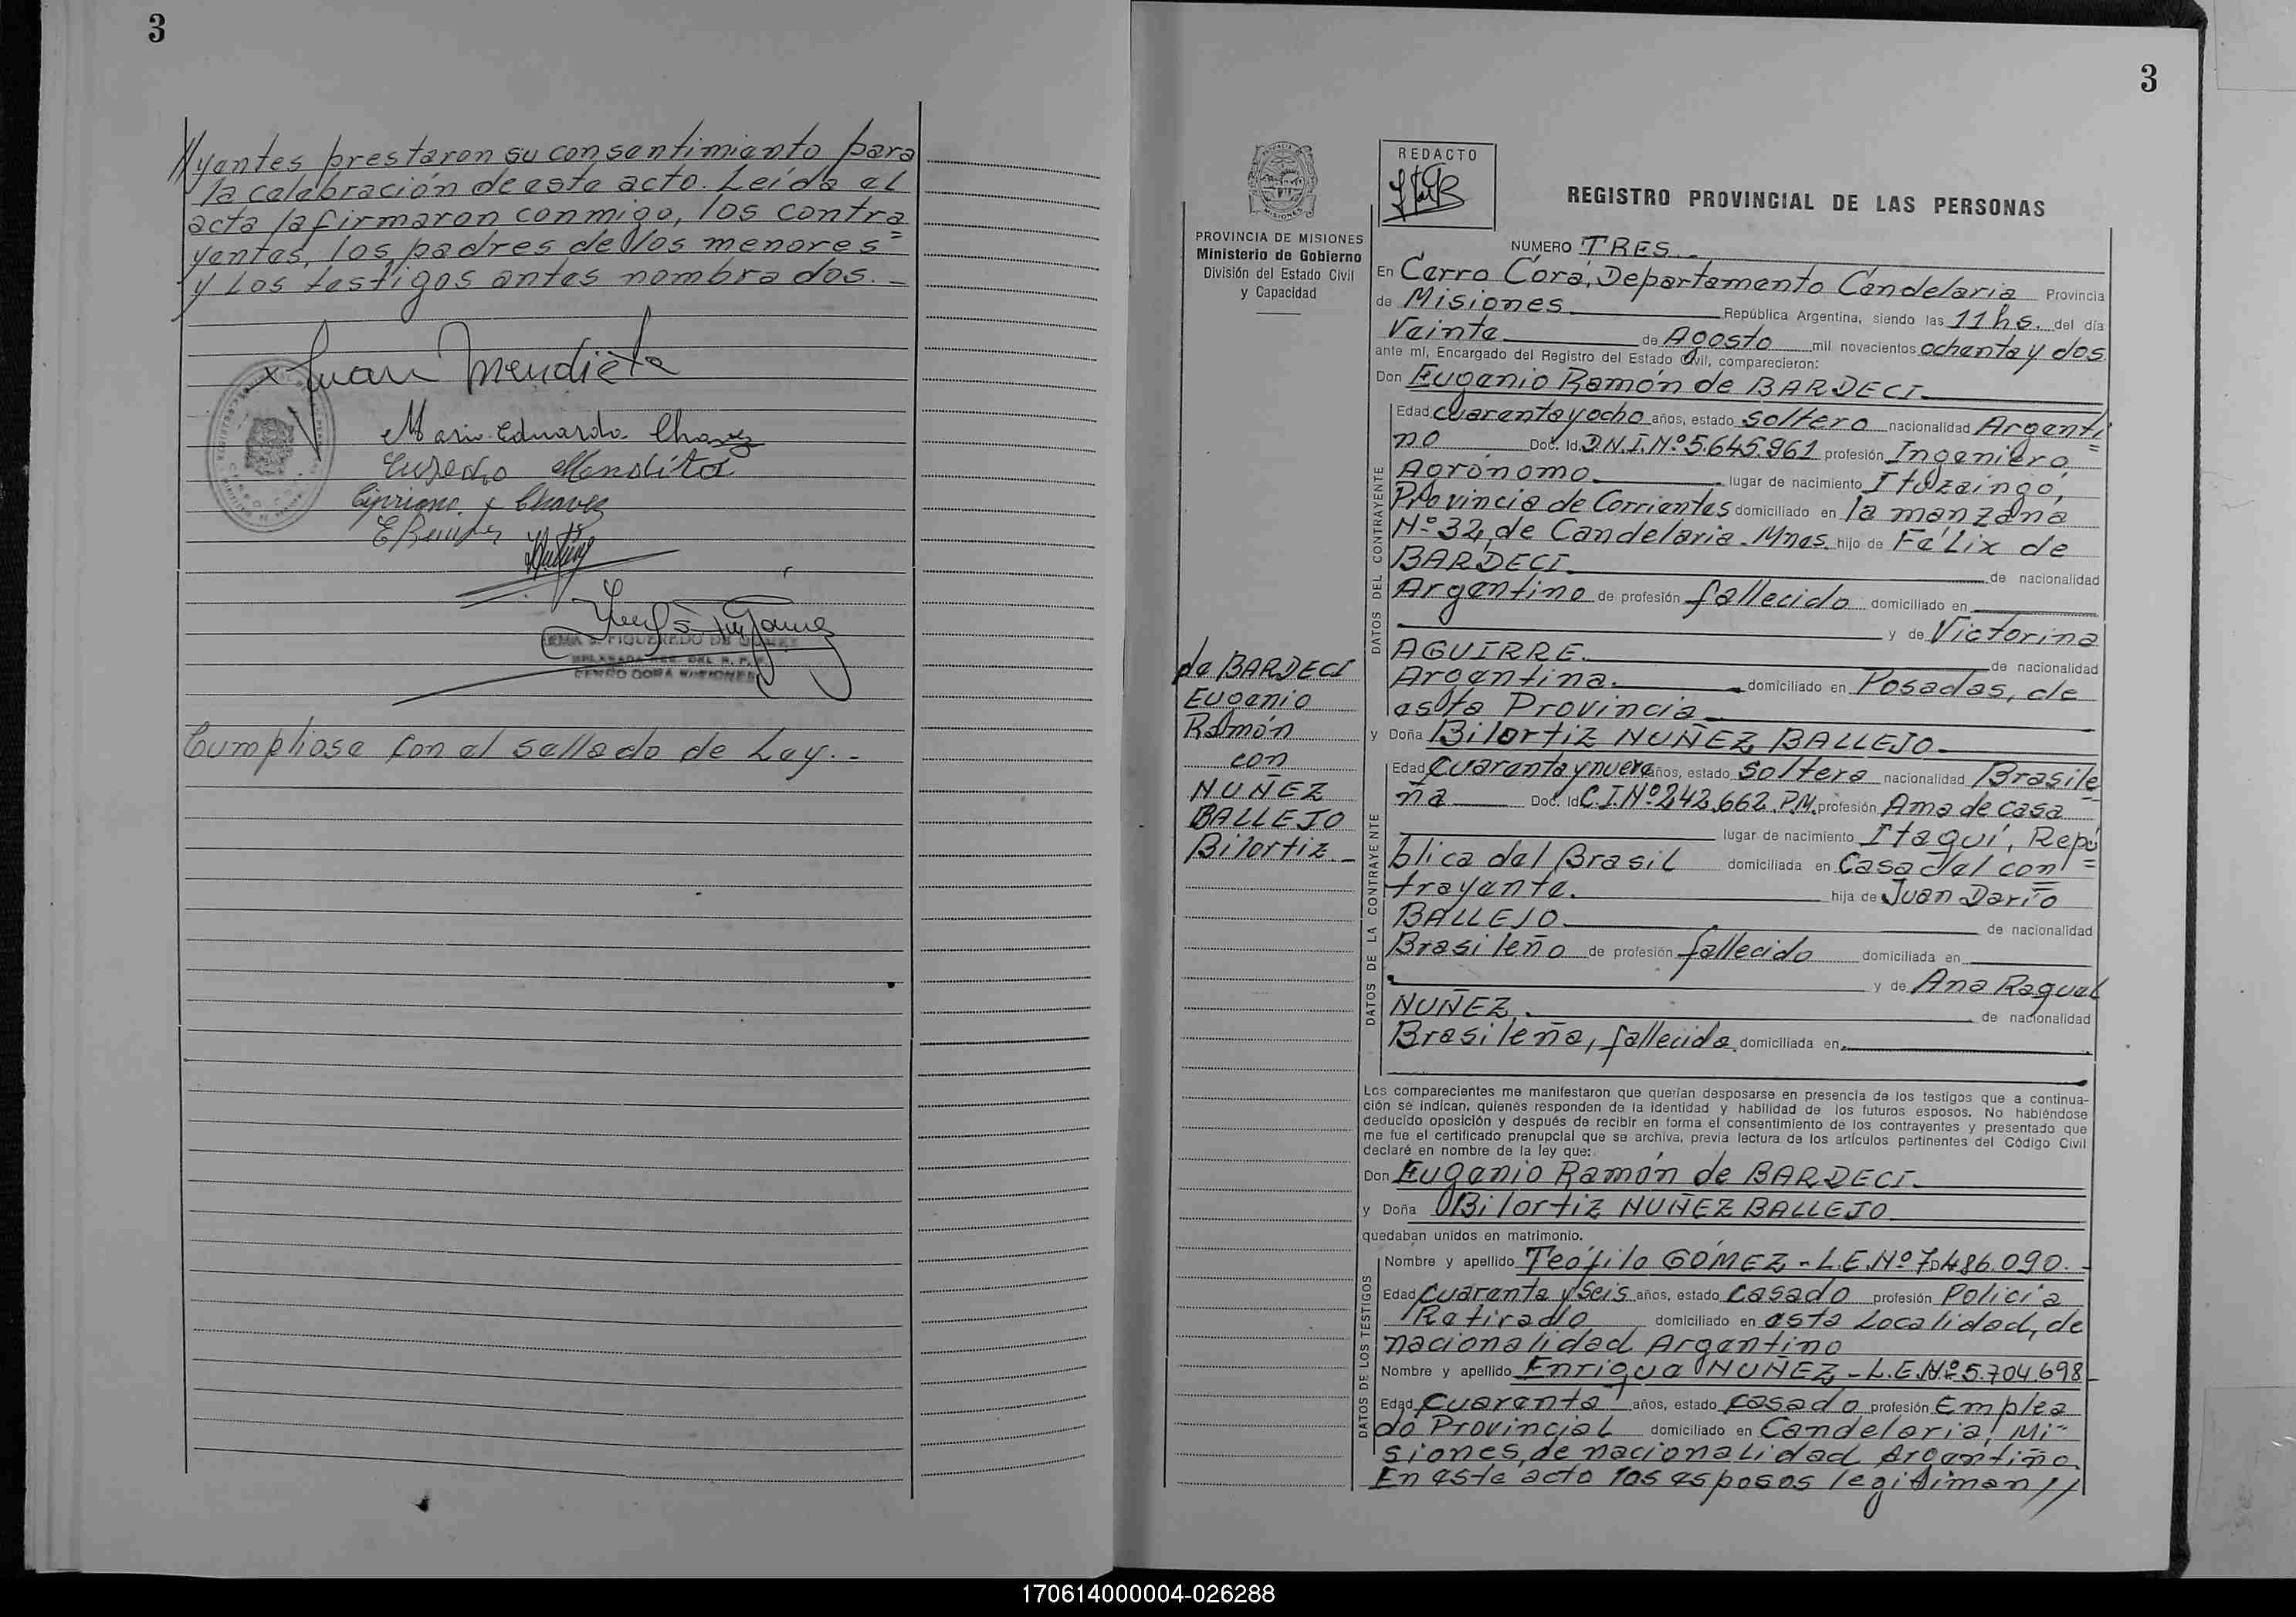 3
//yentes prestaron su consentimiento para
la celebración de este acto. Leída el
acta la firmaron conmigo, los contra
yentes, los padres de los menores
y los testigos antes nombrados.-
x Juan Mendieta
Mario Eduardo Chavez
Cipriano x Chavez
CERRO CORA MISIONES
Cumpliose con el sellado de Ley.-
3
PROVINCIA DE MISIONES
Ministerio de Gobierno
División del Estado Civil
y Capacidad
REDACTO
REGISTRO PROVINCIAL DE LAS PERSONAS
NUMERO TRES.-
En Cerro Corá, Departamento Candelaria Provincia
de Misiones República Argentina, siendo las 11 hs. del día
Veinte de Agosto mil novecientos ochenta y dos
ante mí, Encargado del Registro del Estado Civil, comparecieron:
Don Eugenio Ramón de BARDECI.
DATOS DEL CONTRAYENTE
Edad cuarenta y ocho años, estado soltero nacionalidad Argenti=
no Doc. Id. D.N.I. Nº 5.645.961 profesión Ingeniero
Agrónomo. lugar de nacimiento Ituzaingó,
Provincia de Corrientes domiciliado en la manzana
Nº 32, de Candelaria. Mnes. hijo de Félix de
BARDECI. de nacionalidad
Argentino de profesión fallecido domiciliado en
y de Victorina
AGUIRRE. de nacionalidad
Argentina. domiciliado en Posadas, de
esta Provincia
de BARDECI
Eugenio
Ramón
con
NUÑEZ
BALLEJO
Bilortiz -
y Doña Bilortiz NUÑEZ BALLEJO.
DATOS DE LA CONTRAYENTE
Edad cuarenta y nueve años, estado soltera nacionalidad Brasile=
ña Doc. Id. C.I. Nº 242.662. P.M. profesión Ama de casa
lugar de nacimiento Itaquí, Repú=
blica del Brasil domiciliada en Casa del con=
trayente. hija de Juan Darío
BALLEJO. de nacionalidad
Brasileño de profesión fallecido domiciliada en
y de Ana Raquel
NUÑEZ. de nacionalidad
Brasileña, fallecida. domiciliada en.
Los comparecientes me manifestaron que querían desposarse en presencia de los testigos que a continua-
ción se indican, quienés responden de la identidad y habilidad de los futuros esposos. No habiéndose
deducido oposición y después de recibir en forma el consentimiento de los contrayentes y presentado que
me fue el certificado prenupcial que se archiva, previa lectura de los artículos pertinentes del Código Civil
declaré en nombre de la ley que:
Don Eugenio Ramón de BARDECI.
y Doña Bilortiz NUÑEZ BALLEJO
quedaban unidos en matrimonio.
DATOS DE LOS TESTIGOS
Nombre y apellido Teófilo GÓMEZ - L.E. Nº 7.486.090.-
Edad cuarenta y seis años, estado casado profesión Policía
Retirado domiciliado en esta Localidad, de
nacionalidad Argentino
Nombre y apellido Enrique NUÑEZ - L.E. Nº 5.704.698
Edad cuarenta años, estado casado profesión Emplea
do Provincial domiciliado en Candelaria, Mi-
siones, de nacionalidad Argentino.
En este acto los esposos legitiman //
170614000004-026288